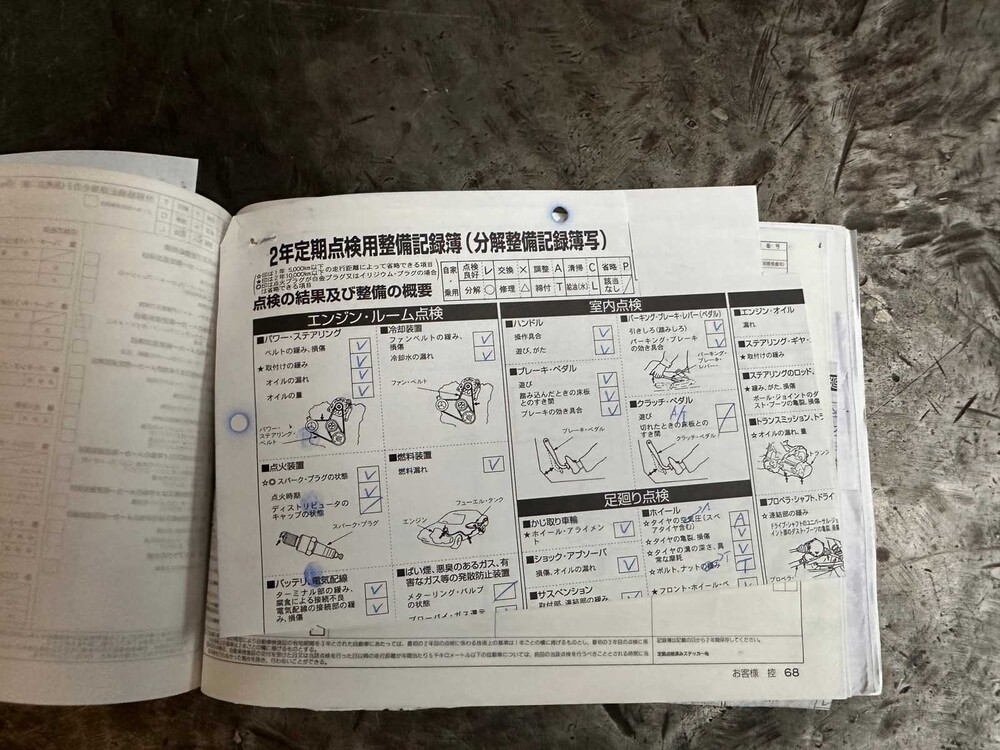 2年定期点検用整備記録簿(分解整備記録簿写)
☆印は1年 5,000km以下の走行距離によって省略できる項目
◎印は点火プラグが白金プラグ又はイリジウム・プラグの場合
は省略できる項目
自家
乗用
点検良好 レ 交換 × 調整 A 清掃 C 省略 P
分解 ○ 修理 △ 締付 T 給油(水) L 該当なし /
点検の結果及び整備の概要
エンジン・ルーム点検
■パワー・ステアリング
ベルトの緩み、損傷
★取付けの緩み
オイルの漏れ
オイルの量
パワー・
ステアリング・
ベルト
■冷却装置
ファンベルトの緩み、
損傷
冷却水の漏れ
ファン・ベルト
■点火装置
☆◎スパーク・プラグの状態
点火時期
ディストリビュータの
キャップの状態
スパーク・プラグ
■燃料装置
燃料漏れ
フューエル・タンク
エンジン
■バッテリ、電気配線
ターミナル部の緩み、
腐食による接続不良
電気配線の接続部の緩
み、損傷
■ばい煙、悪臭のあるガス、有
害なガス等の発散防止装置
メターリング・バルブ
の状態
ブローバイ・ガス還元
室内点検
■ハンドル
操作具合
遊び、がた
■ブレーキ・ペダル
遊び
踏み込んだときの床板
とのすき間
ブレーキの効き具合
ブレーキ・ペダル
■パーキング・ブレーキ・レバー(ペダル)
引きしろ(踏みしろ)
パーキング・ブレーキ
の効き具合
パーキング・
ブレーキ・
レバー
■クラッチ・ペダル
遊び
A/T
切れたときの床板との
すき間
クラッチ・ペダル
足廻り点検
■かじ取り車輪
★ホイール・アライメン
ト
■ショック・アブソーバ
損傷、オイルの漏れ
■サスペンション
取付部、連結部の緩み
■ホイール
☆タイヤの空気圧(スペ
アタイヤ含む)
☆タイヤの亀裂、損傷
☆タイヤの溝の深さ、異
常な摩耗
☆ボルト、ナットの緩み
★フロント・ホイール・ベ
■エンジン・オイル
漏れ
■ステアリング・ギヤ・
★取付けの緩み
■ステアリングのロッド、
★緩み、がた、損傷
ボール・ジョイントのダ
スト・ブーツの亀裂、損傷
■トランスミッション、トラ
☆オイルの漏れ、量
トランス
■プロペラ・シャフト、ドライ
☆連結部の緩み
ドライブ・シャフトのユニバーサル・ジョ
イント部のダスト・ブーツの亀裂、損傷
プロペラ・
記録簿は記載の日から2年間保存してください。
定期点検済みステッカー№
行わないことができる。
お客様 控 68